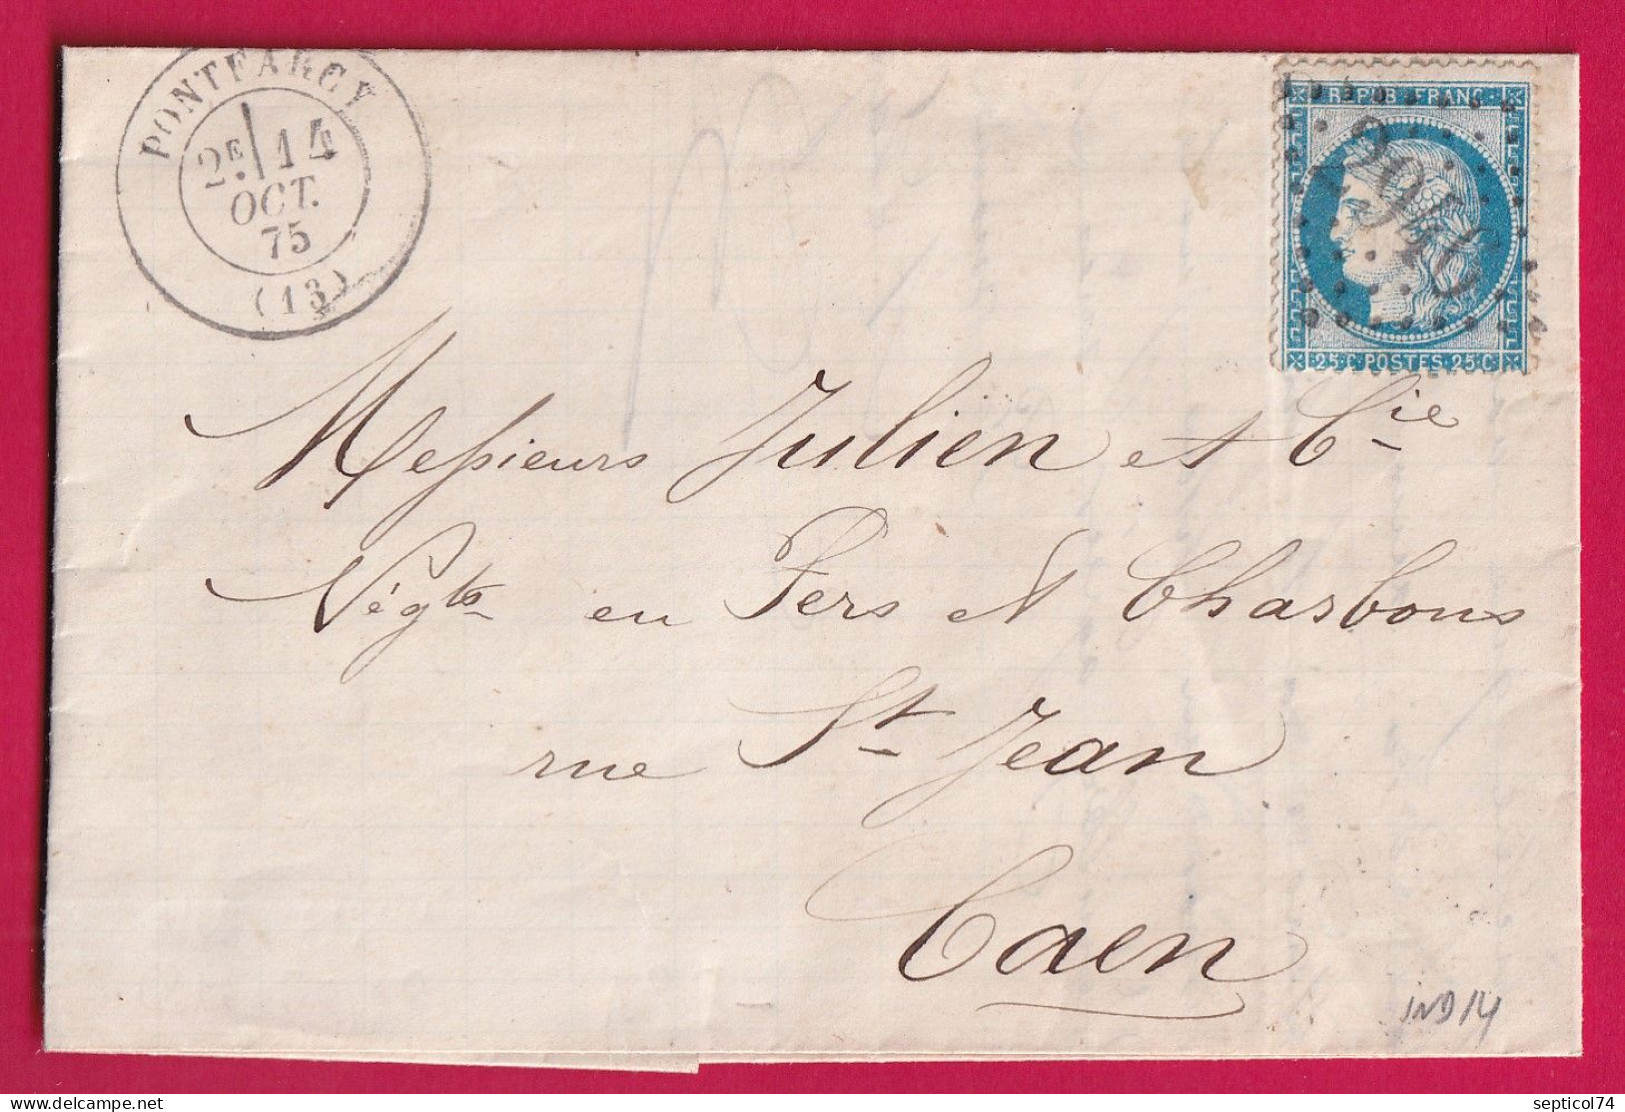 PONTFARCY
2E. 14
OCT.
75
(13)
REPUB FRANC
2946
25C POSTES 25C
Messieurs Julien et Cie
Négts en Fers et Charbons
rue St Jean
Caen
IND 14
delcampe.net
septicol74